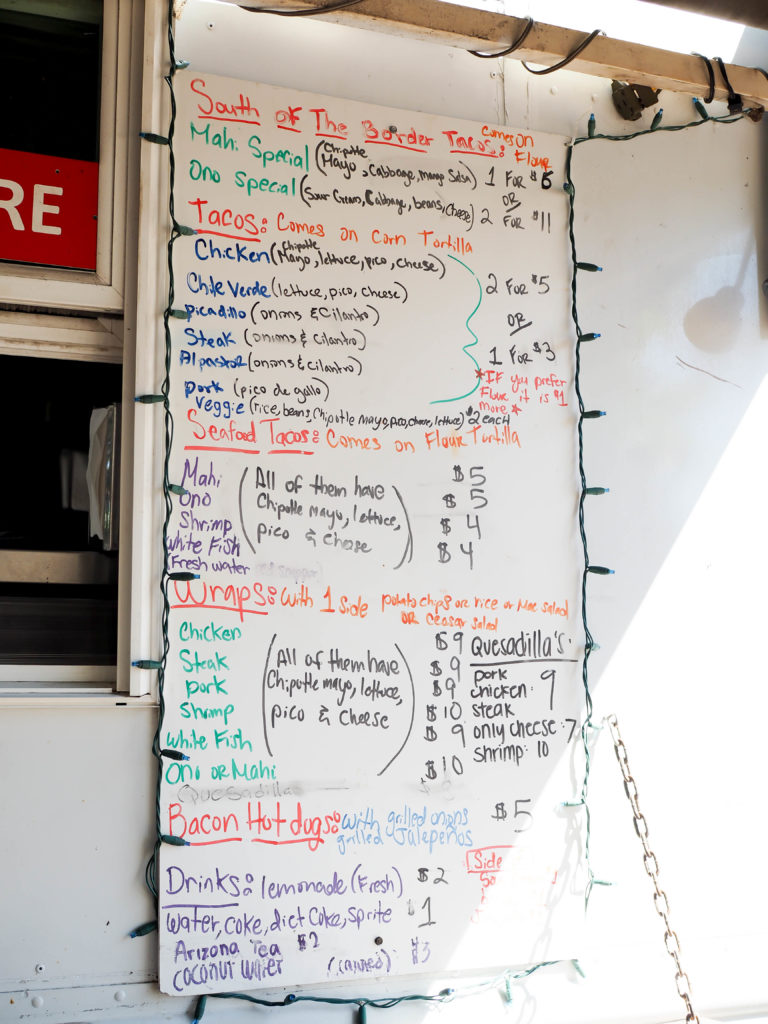 RE
South of The Border Tacos: comes on Flour
Mahi Special (Chipotle Mayo, Cabbage, mango Salsa) 1 FOR $6
OR
Ono Special (Sour Cream, Cabbage, beans, Cheese) 2 FOR $11
Tacos: Comes on Corn Tortilla
Chicken (Chipotle Mayo, lettuce, pico, cheese)
Chile Verde (lettuce, pico, cheese) 2 FOR $5
picadillo (onions & Cilantro) OR
Steak (onions & cilantro) 1 FOR $3
Al pastor (onions & cilantro)
pork (pico de gallo)
*IF you prefer
Flour it is $1
more *
Veggie (rice, beans, Chipotle mayo, pico, cheese, lettuce) $2 each
Seafood Tacos: Comes on Flour Tortilla
Mahi $5
Ono $5
Shrimp $4
White Fish $4
(Fresh water
(All of them have
Chipotle mayo, lettuce,
pico & Cheese)
Wraps: with 1 side potato chips or rice or Mac salad
OR ceasar salad
Chicken $9
Steak $9
pork $9
Shrimp $10
White Fish $9
Ono or Mahi $10
(All of them have
Chipotle mayo, lettuce,
pico & cheese)
Quesadilla's:
pork
chicken: 9
steak
only cheese: 7
shrimp: 10
Quesadilla
Bacon Hot dogs: with grilled onions $5
grilled Jalepeños
Drinks: lemonade (Fresh) $2
Water, coke, diet coke, sprite $1
Arizona Tea $2
coconut water (canned) $3
Side